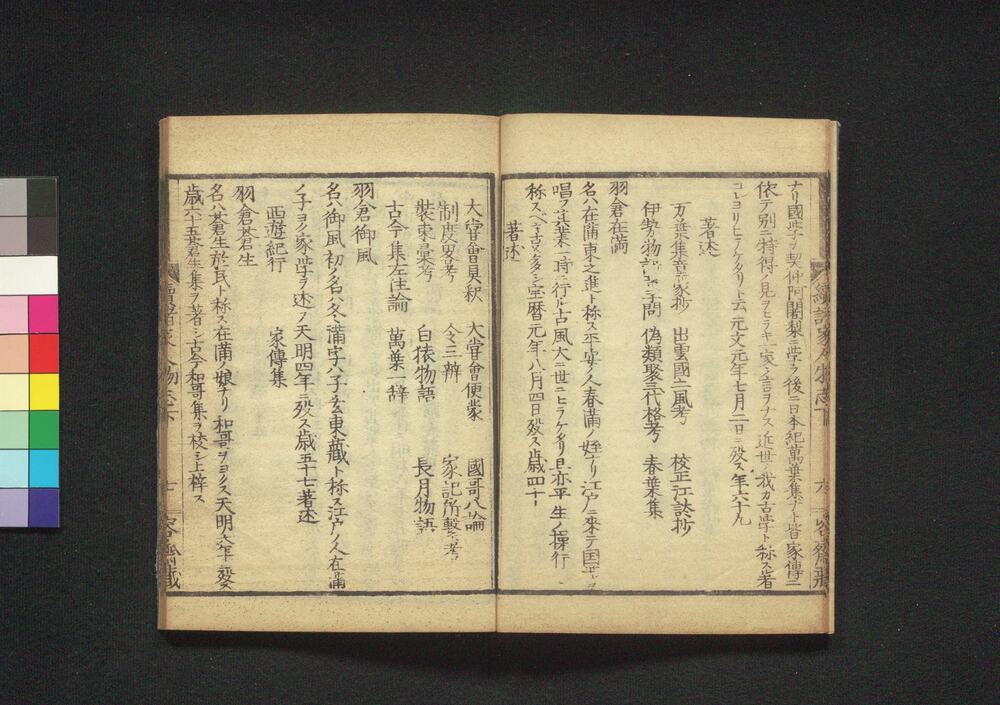 ナリ國學ヲ契仲阿闍梨ニ學ヲ後ニ日本紀萬葉集ナト皆家傳ニ
依テ別ニ特得ノ見ヲヒラキ一家ノ言ヲナス近世ノ我カ古學ト称ス者
コレヨリヒラケタリト云元文元年七月二日ニ歿ス年六十九
著述
万葉集童家抄 出雲國土風考 校正江談抄
伊勢物語 問 偽類聚三代格考 春葉集
羽倉在満
名ハ在満東之進ト称ス平安ノ人春満ノ姪ナリ江戸ニ來テ国学ヲ
唱フ其業一時ニ行ル古風大ニ世ニヒラケタリ且亦平生ノ操行
称スヘキ支多シ宝暦元年八月四日歿ス歳四十
著述
大嘗會具釈 大嘗會便蒙 國哥八論
制度畧考 令三辨 家記所繫考
装束彙考 白猿物語 長月物語
古今集左注論 萬葉一辞
羽倉御風
名ハ御風初ノ名ハ冬満字ハ子玄東藏ト称ス江戸ノ人在満
ノ子ヨク家学ヲ述フ天明四年ニ歿ス歳五十七著述
西遊紀行 家傳集
羽倉蒼生
名ハ蒼生於民ト称ス在満ノ娘ナリ和哥ヲヨクス天明 年ニ歿ス
歳六十五蒼生集ヲ著シ古今和哥集ヲ校シ上梓ス
續諸家人物志下 七 容齋藏